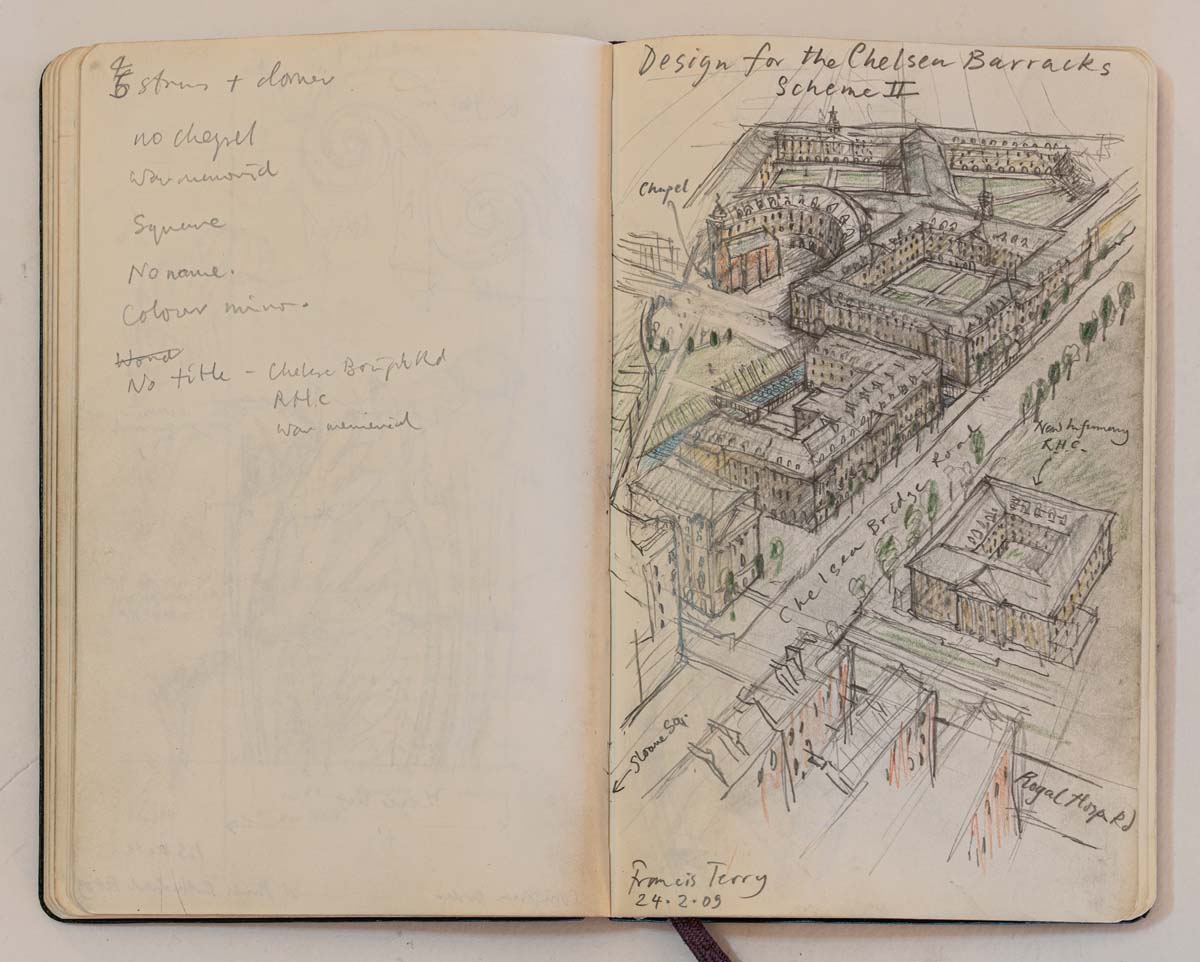 + dorner
no chapel
war memorial
Square
No name.
Colour
No title - Chelsea Rd
R.H.C
war memorial
Design for the Chelsea Barracks
Scheme II
Chapel
New Infirmary
R.H.C.
Chelsea Bridge Road
Sloane Sq.
Royal Hosp Rd
Francis Terry
24.2.09